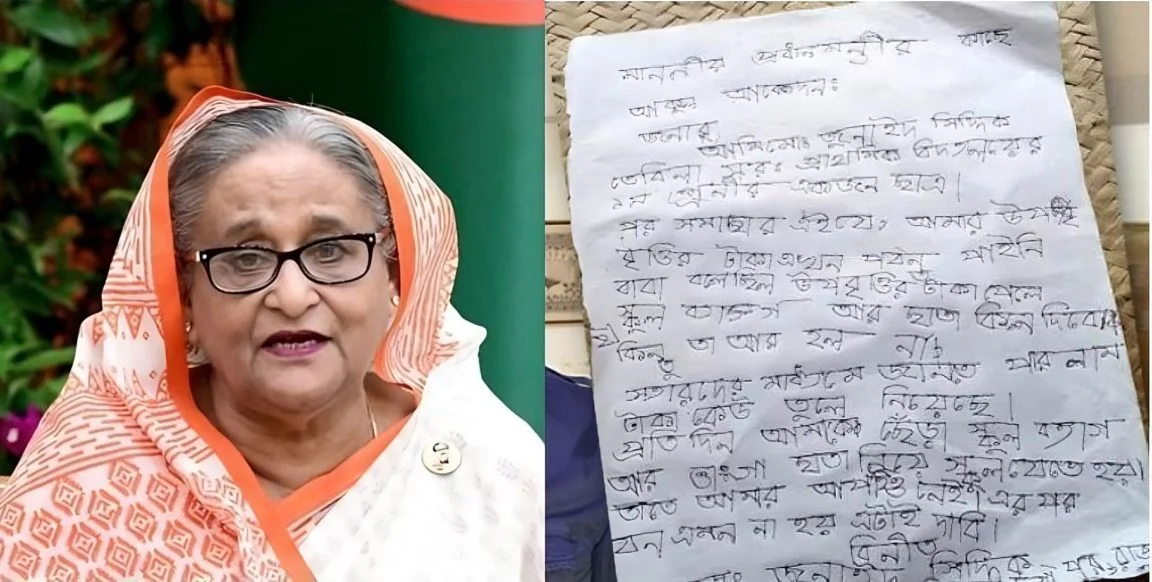 মাননীয় প্রধানমন্ত্রীর কাছে
আকুল আবেদন:
জনাব,
আমি মোঃ জুনাইদ সিদ্দিক
তেবিলা সরঃ প্রাথমিক বিদ্যালয়ের
শ্রেনীর একজন ছাত্র।
পর সমাচার এইযে, আমার উপ
বৃত্তির টাকা এখন পর্যন্ত পাইনি
বাবা বলেছিল উপবৃত্তির টাকা পেলে
স্কুল ব্যাগ আর ছাতা কিনে দিবো
কিন্তু তা আর হল না,
সহারদের মাধ্যমে জানতে পারলাম
টাকা কেউ তুলে নিয়েছে।
প্রতি দিন আমাকে ছেঁড়া স্কুল ব্যাগ
আর ভাংগা ছাতা নিয়ে স্কুল যেতে হয়।
তাতে আমার আপত্তি নেই এর পর
যেন এমন না হয় এটাই দাবি।
বিনীত
সিদ্দিক